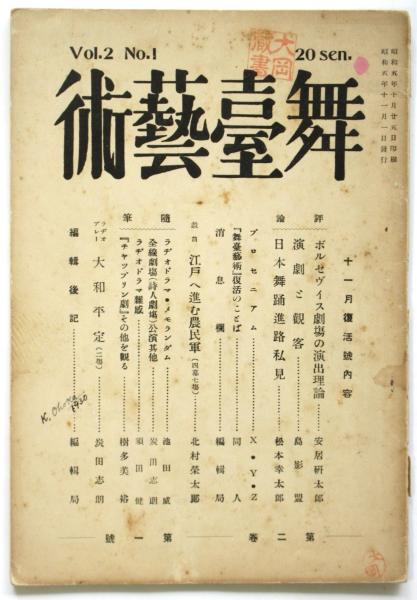 Vol.2 No.1
20 sen.
大岡蔵書
昭和五年十月廿五日印刷
昭和五年十一月一日發行
舞臺藝術
十一月復活號內容
評論
ボルセヴイズム劇場の演出理論 安居研太郎
演劇と觀客 島影盟
日本舞踊進路私見 松本幸太郎
プロセニアム X・Y・Z
『舞臺藝術』復活のことば 同人
消息欄 編輯局
戲曲 江戸へ進む農民軍(四幕七場) 北村榮太郎
隨筆
ラヂオドラマ・メモランダム 池田威
全線劇場(詩人劇場)公演其他 炭田志朗
ラヂオドラマ雜感 須田健
『チャップリン劇』その他を觀る 樹多美裕
ラヂオプレー 大和平定(二場) 炭田志朗
編輯後記 編輯局
第二卷 第一號
K. Ohoka
1930
大岡